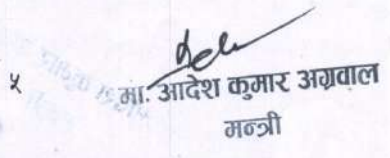 ५
मा. आदेश कुमार अग्रवाल
मन्त्री